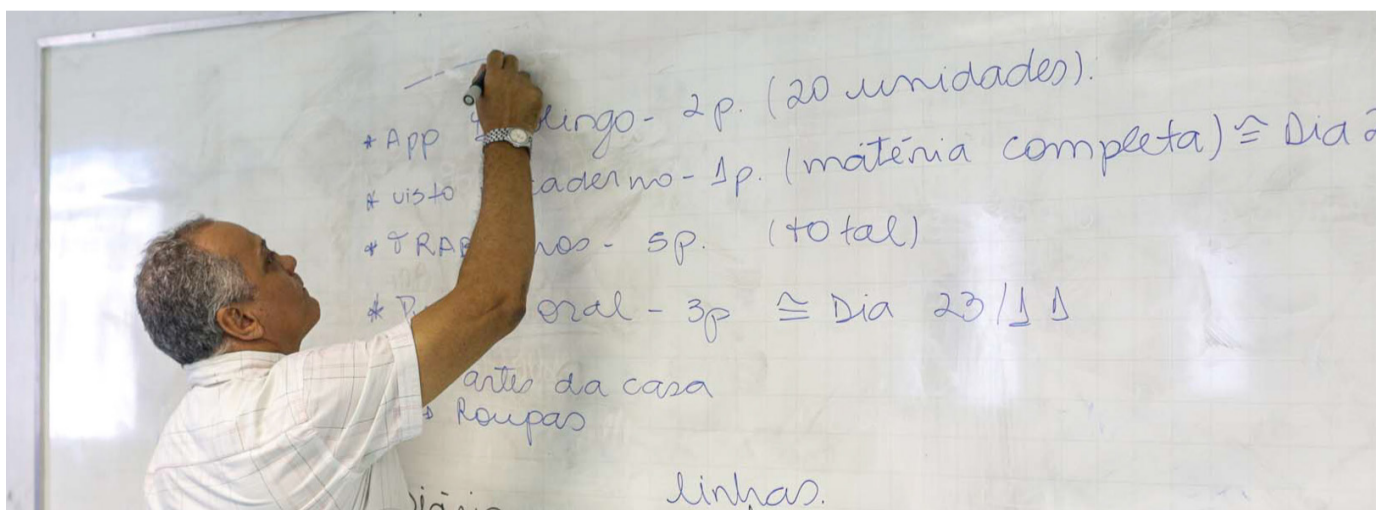 * App lingo - 2p. (20 unidades).
* visto caderno - 1p. (matéria completa) ≅ Dia 2
* TRAB hos - 5p. (total)
* P oral - 3p ≅ Dia 23/11
artes da casa
Roupas
linhas.